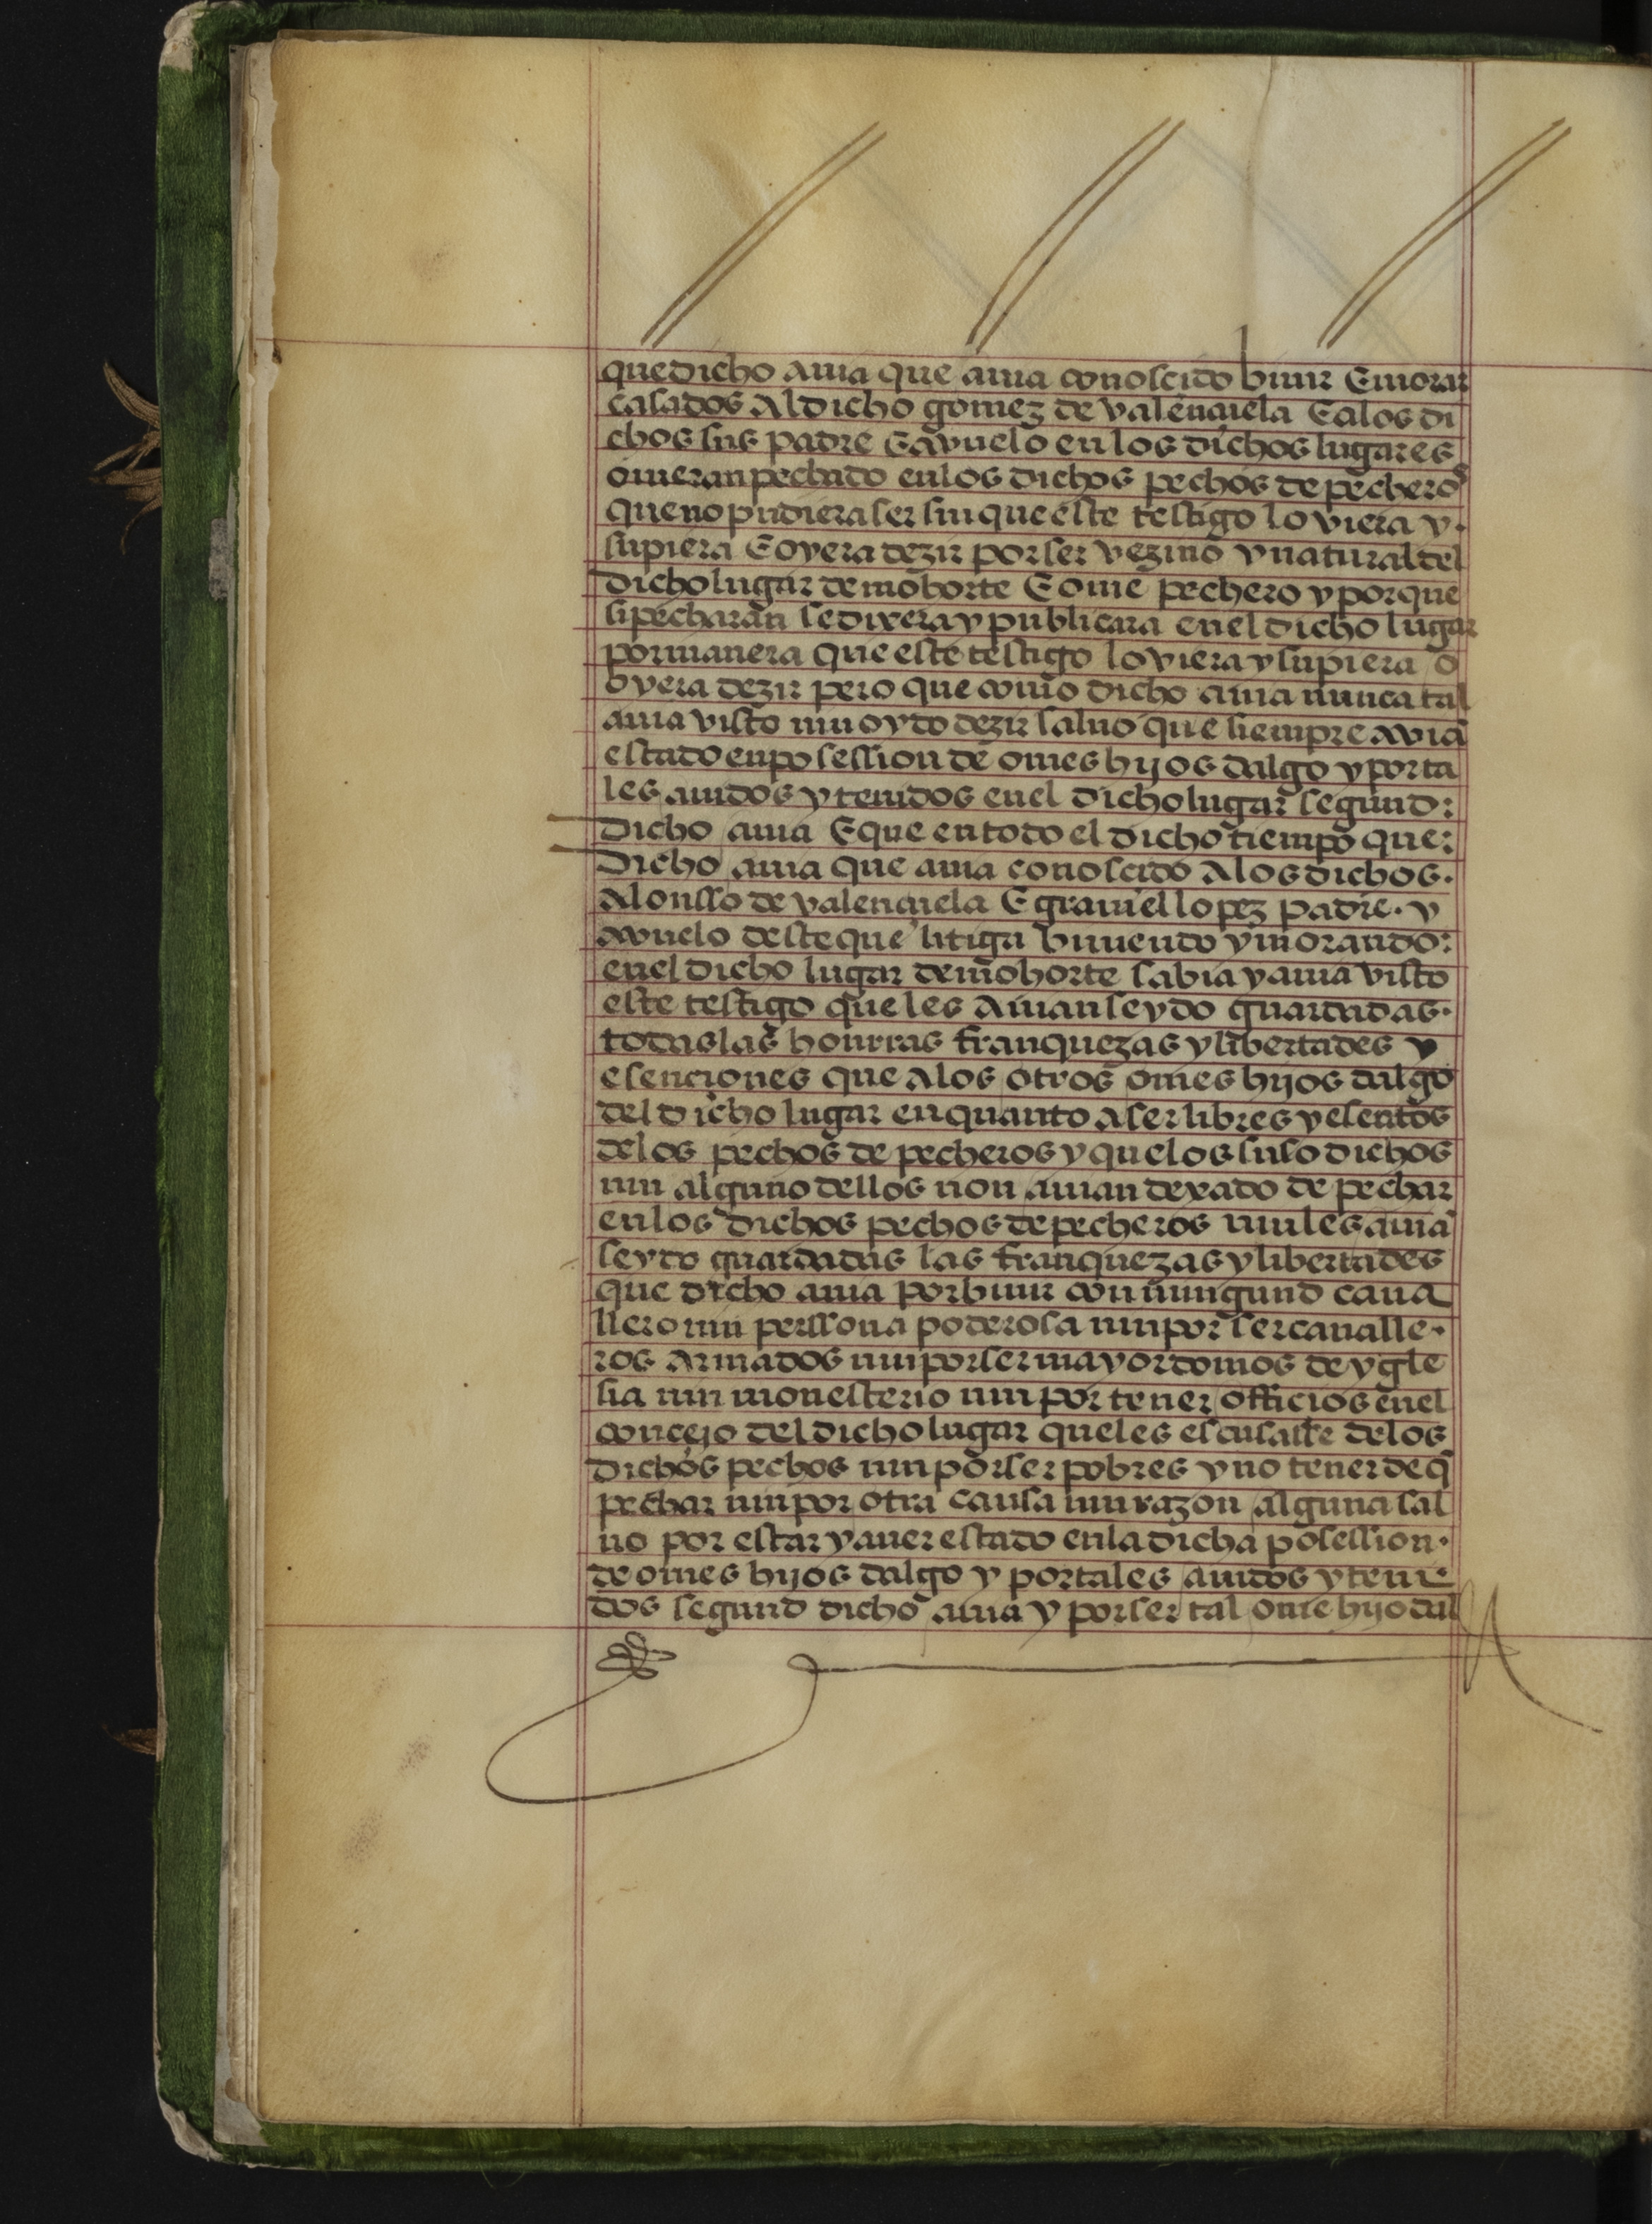 que dicho auia que auia conoscido biuir E morar
casados Al dicho gomez de valençuela E a los di
chos sus padre E avuelo en los dichos lugares
ouieran pechado en los dichos pechos de pecheros
que no pudiera ser sin que este testigo lo viera y.
supiera E oyera dezir por ser vezino y natural del
dicho lugar de mohorte E ome pechero y porque
si pecharan se dixera y publicara en el dicho lugar
por manera que este testigo lo viera y supiera o
oyera dezir pero que como dicho auia nunca tal
auia visto nin oydo dezir saluo que siempre avia
estado en posession de omes hijos dalgo y por ta
les auidos y tenidos en el dicho lugar segund:
dicho auia E que en todo el dicho tiempo que:
Dicho auia que auia conoscido A los dichos.
Alonsso de valençuela E grauiel lopez padre. y
avuelo deste que litiga biuiendo y morando:
en el dicho lugar de mohorte sabia y auia visto
este testigo que les Auian seydo guardadas.
todas las honrras franquezas y libertades y
esenciones que A los otros omes hijos dalgo
del dicho lugar en quanto a ser libres y esentos
de los pechos de pecheros y que los suso dichos
nin alguno dellos non auian dexado de pechar
en los dichos pechos de pecheros nin les auia
seydo guardadas las franquezas y libertades
que dicho auia por biuir con ningund caua
llero nin perssona poderosa nin por ser caualle.
ros Armados nin por ser mayordomos de ygle
sia nin monesterio nin por tener officios en el
concejo del dicho lugar que les escusasse de los
dichos pechos nin por ser pobres y no tener de q̃
pechar nin por otra causa nin razon alguna sal
uo por estar y auer estado en la dicha posession.
de omes hijos dalgo y por tales auidos y teni
dos segund dicho auia y por ser tal ome hijo dal